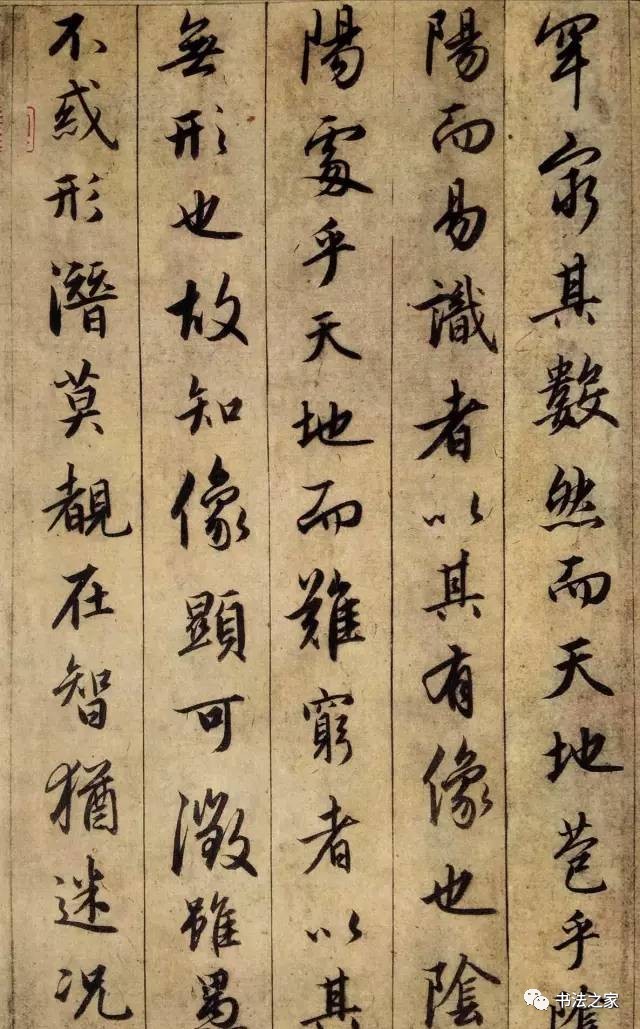 罕窮其數然而天地苞乎陰
陽而易識者以其有像也陰
陽處乎天地而難窮者以其
無形也故知像顯可徵雖愚
不惑形潛莫覩在智猶迷况
书法之家